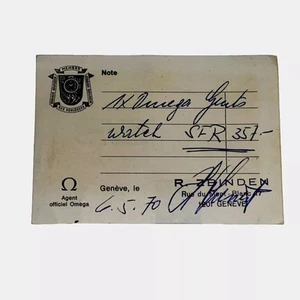 MEMBRE
Note
1x Omega Gents
watch SFR 357.-
Ω
Agent
officiel Omega
Genève, le
6.5.70
R. ZBINDEN
Rue du Mont-Blanc
1201 GENEVE